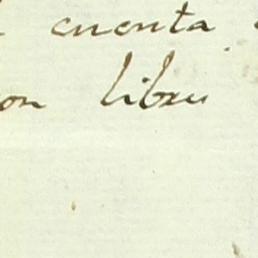 cuenta
on libru